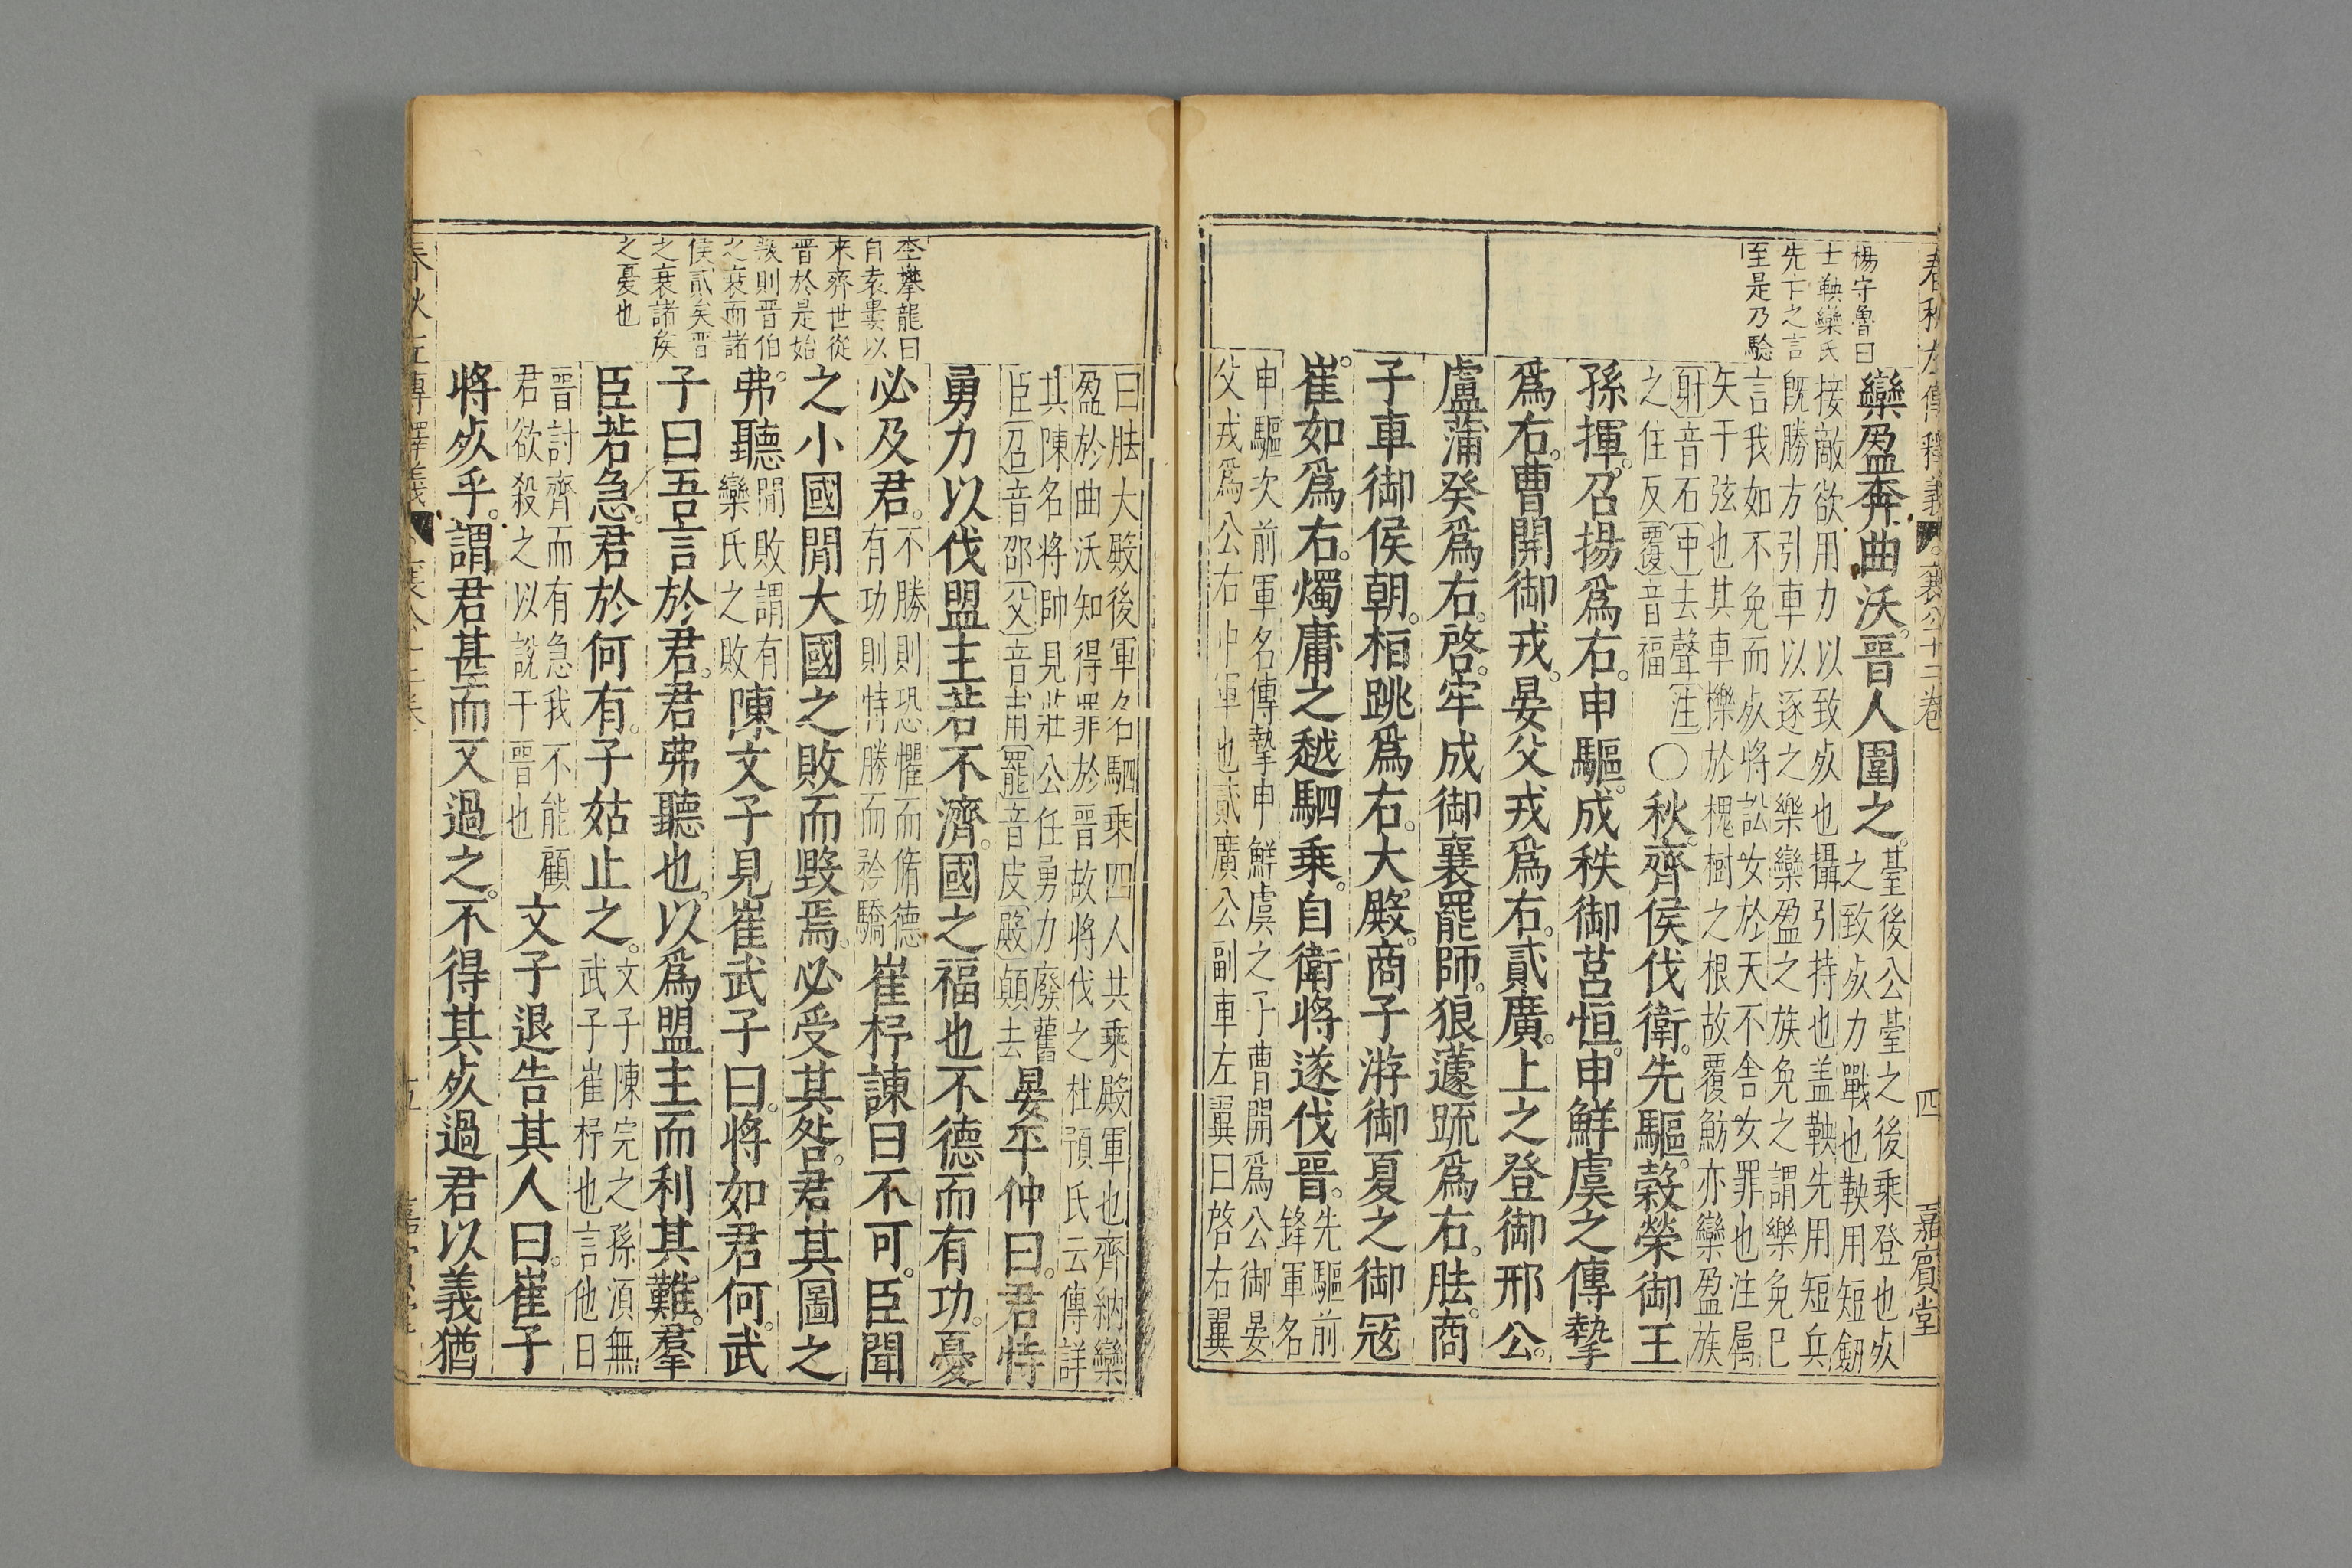 春秋左傳釋義 襄公十二卷 四 嘉賓堂
楊守魯曰
士鞅欒氏
先亡之言
至是乃驗
欒盈奔曲沃。晋人圍之。臺後公臺之後乘登也㱕
之致㱕力戰也鞅用短劔
接敵欲用力以致㱕也攝引持也盖鞅先用短兵
旣勝方引車以逐之樂欒盈之族免之謂樂免已
言我如不免而㱕將訟女於天不舍女罪也注属
矢于弦也其車櫟於槐樹之根故覆魴亦欒盈族
射音石中去聲注
之住反覆音福
〇秋。齊侯伐衛。先驅。榖榮御王
孫揮。召揚爲右。申驅。成秩御莒恒。申鮮虞之傳摯
爲右。曹開御戎。晏父戎爲右。貳廣。上之登御邢公。
盧蒲癸爲右。啓。牢成御襄罷師。狼蘧䟽爲右。胠。商
子車御侯朝。桓跳爲右。大殿。商子游御夏之御冦
崔。如爲右。燭庸之越駟乘。自衛將遂伐晋。先驅前
鋒軍名
申驅次前軍名傳摯申鮮虞之子曹開爲公御晏
父戎爲公右中軍也貳廣公副車左翼曰啓右翼
曰胠大殿後軍名駟乘四人共乘殿軍也齊納欒
盈於曲沃知得罪於晋故將伐之杜預氏云傳詳
其陳名將帥見莊公任勇力廢舊
臣召音邵父音甫罷音皮殿顛去
晏平仲曰。君恃
勇力以伐盟主若不濟。國之福也不德而有功。憂
必及君。不勝則恐懼而脩德
有功則恃勝而矜驕
崔杼諫曰不可。臣聞
之小國閒大國之敗而毀焉。必受其咎。君其圖之
弗。聽閒敗謂有
欒氏之敗
陳文子見崔武子曰。將如君何。武
子曰吾言於君。君弗聽也。以爲盟主而利其難。羣
臣若急。君於何有。子姑止之。文子陳完之孫湏無
武子崔杼也言他日
晋討齊而有急我不能顧
君欲殺之以說于晋也
文子退告其人曰。崔子
將㱕乎。謂君甚而又過之。不得其㱕過君以義猶
李攀龍曰
自袁婁以
来齊世從
晋於是始
叛則晋伯
之衰而諸
侯貳矣晋
之衰諸侯
之憂也
春秋左傳釋義 五